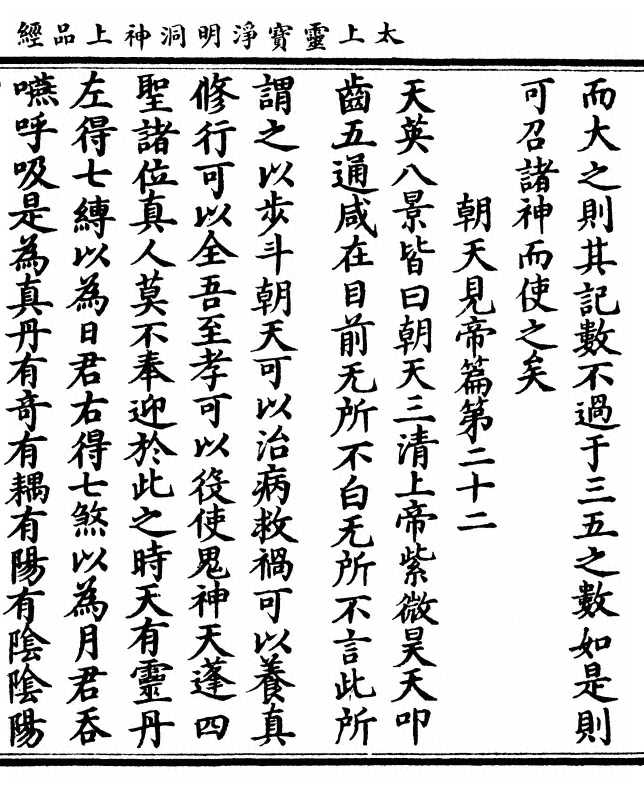 太上靈寶淨明洞神上品經
而大之則其記數不過于三五之數如是則
可召諸神而使之矣
朝天見帝篇第二十二
天英八景皆曰朝天三清上帝紫微昊天叩
齒五通咸在目前无所不白无所不言此所
謂之以步斗朝天可以治病救禍可以養真
修行可以全吾至孝可以役使鬼神天蓬四
聖諸位真人莫不奉迎於此之時天有靈丹
左得七縛以為日君右得七煞以為月君吞
嚥呼吸是為真丹有奇有耦有陽有陰陰陽